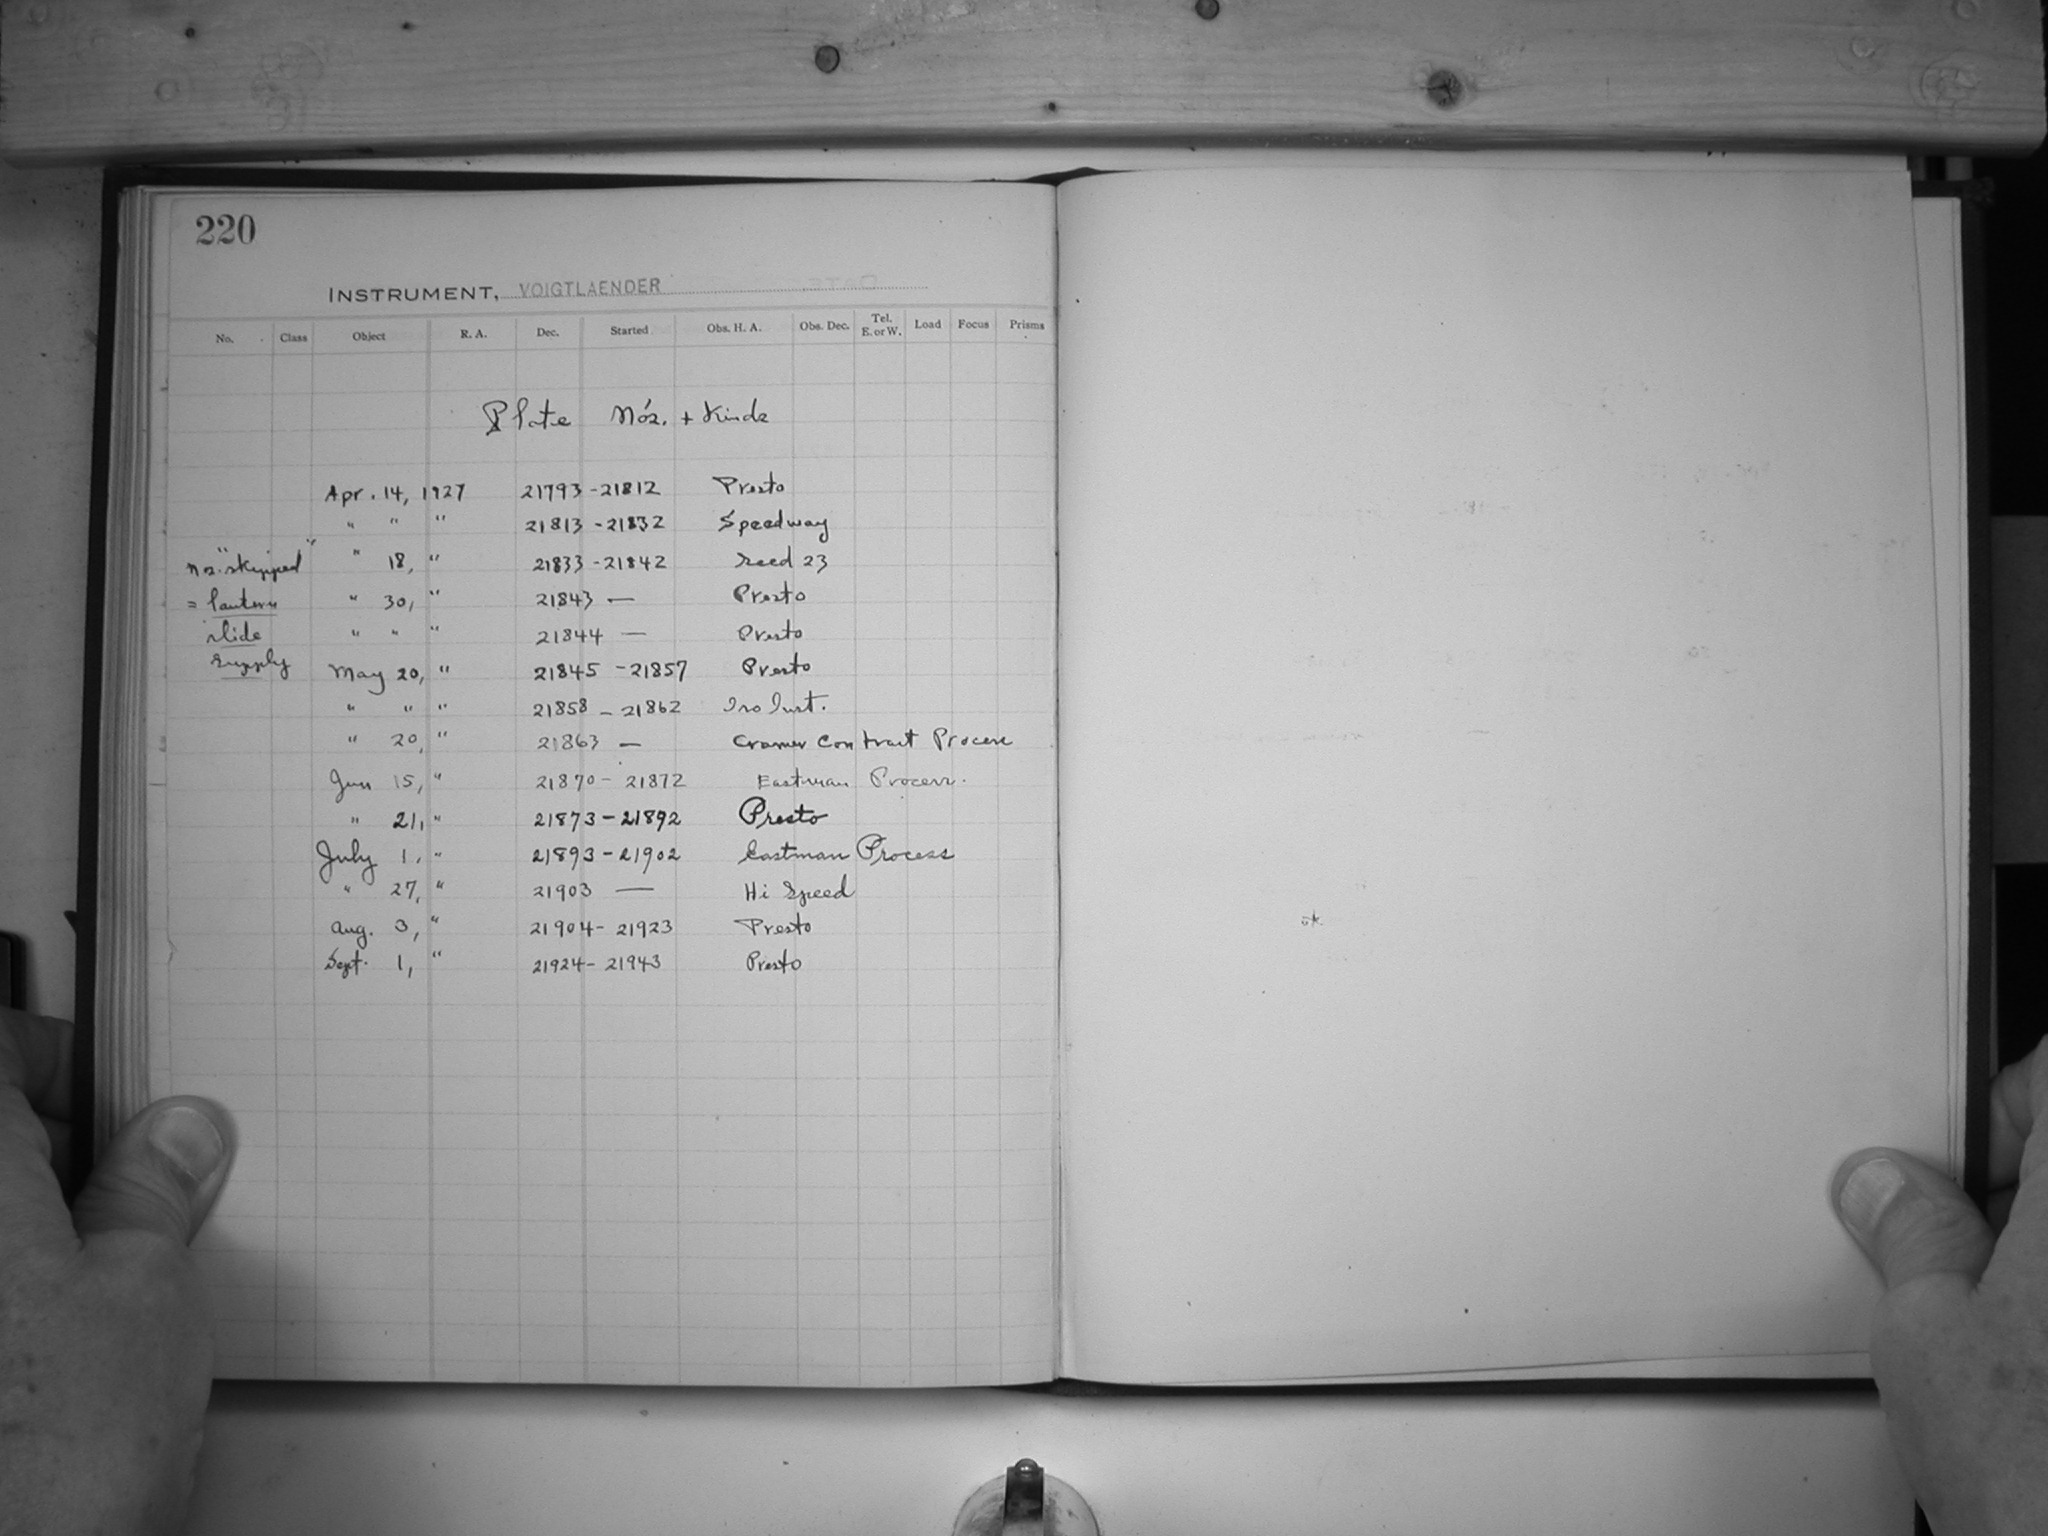 220
INSTRUMENT, VOIGTLAENDER
No. Class Object R. A. Dec. Started Obs. H. A. Obs. Dec. Tel. E. or W. Load Focus Prisms
Plate No's. + Kinds
Apr. 14, 1927 21793 - 21812 Presto
" " " 21813 - 21832 Speedway
" 18, " 21833 - 21842 Seed 23
" 30, " 21843 — Presto
" " " 21844 — Presto
May 20, " 21845 - 21857 Presto
" " " 21858 - 21862 Iso Inst.
" 20, " 21863 — Cramer Contrast Process
Jun 15, " 21870 - 21872 Eastman Process.
" 21, " 21873 - 21892 Presto
July 1, " 21893 - 21902 Eastman Process
" 27, " 21903 — Hi Speed
Aug. 3, " 21904 - 21923 Presto
Sept. 1, " 21924 - 21943 Presto
"skipped"
= lantern
slide
supply